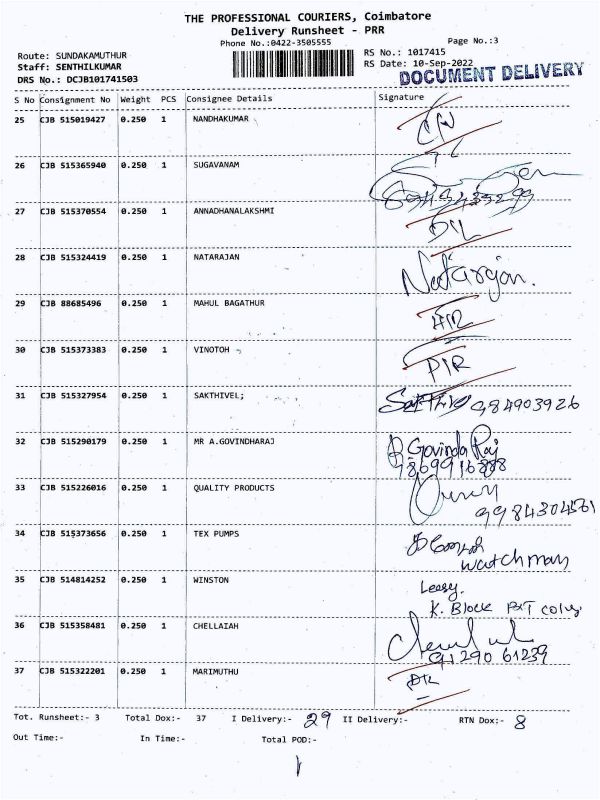 THE PROFESSIONAL COURIERS, Coimbatore
Delivery Runsheet - PRR
Phone No.:0422-3505555 Page No.:3
Route: SUNDAKAMUTHUR RS No.: 1017415
Staff: SENTHILKUMAR RS Date: 10-Sep-2022
DRS No.: DCJB101741503 DOCUMENT DELIVERY
S No Consignment No Weight PCS Consignee Details Signature
25 CJB 515019427 0.250 1 NANDHAKUMAR
26 CJB 515365940 0.250 1 SUGAVANAM
27 CJB 515370554 0.250 1 ANNADHANALAKSHMI
28 CJB 515324419 0.250 1 NATARAJAN Natarajan.
29 CJB 88685496 0.250 1 MAHUL BAGATHUR
30 CJB 515373383 0.250 1 VINOTOH
31 CJB 515327954 0.250 1 SAKTHIVEL; 984903926
32 CJB 515290179 0.250 1 MR A.GOVINDHARAJ Govinda Raj
9869916888
33 CJB 515226016 0.250 1 QUALITY PRODUCTS
9984304561
34 CJB 515373656 0.250 1 TEX PUMPS
watchman
35 CJB 514814252 0.250 1 WINSTON
K. Block
36 CJB 515358481 0.250 1 CHELLAIAH
91290 61239
37 CJB 515322201 0.250 1 MARIMUTHU
Tot. Runsheet:- 3 Total Dox:- 37 I Delivery:- 29 II Delivery:- RTN Dox:- 8
Out Time:- In Time:- Total POD:-